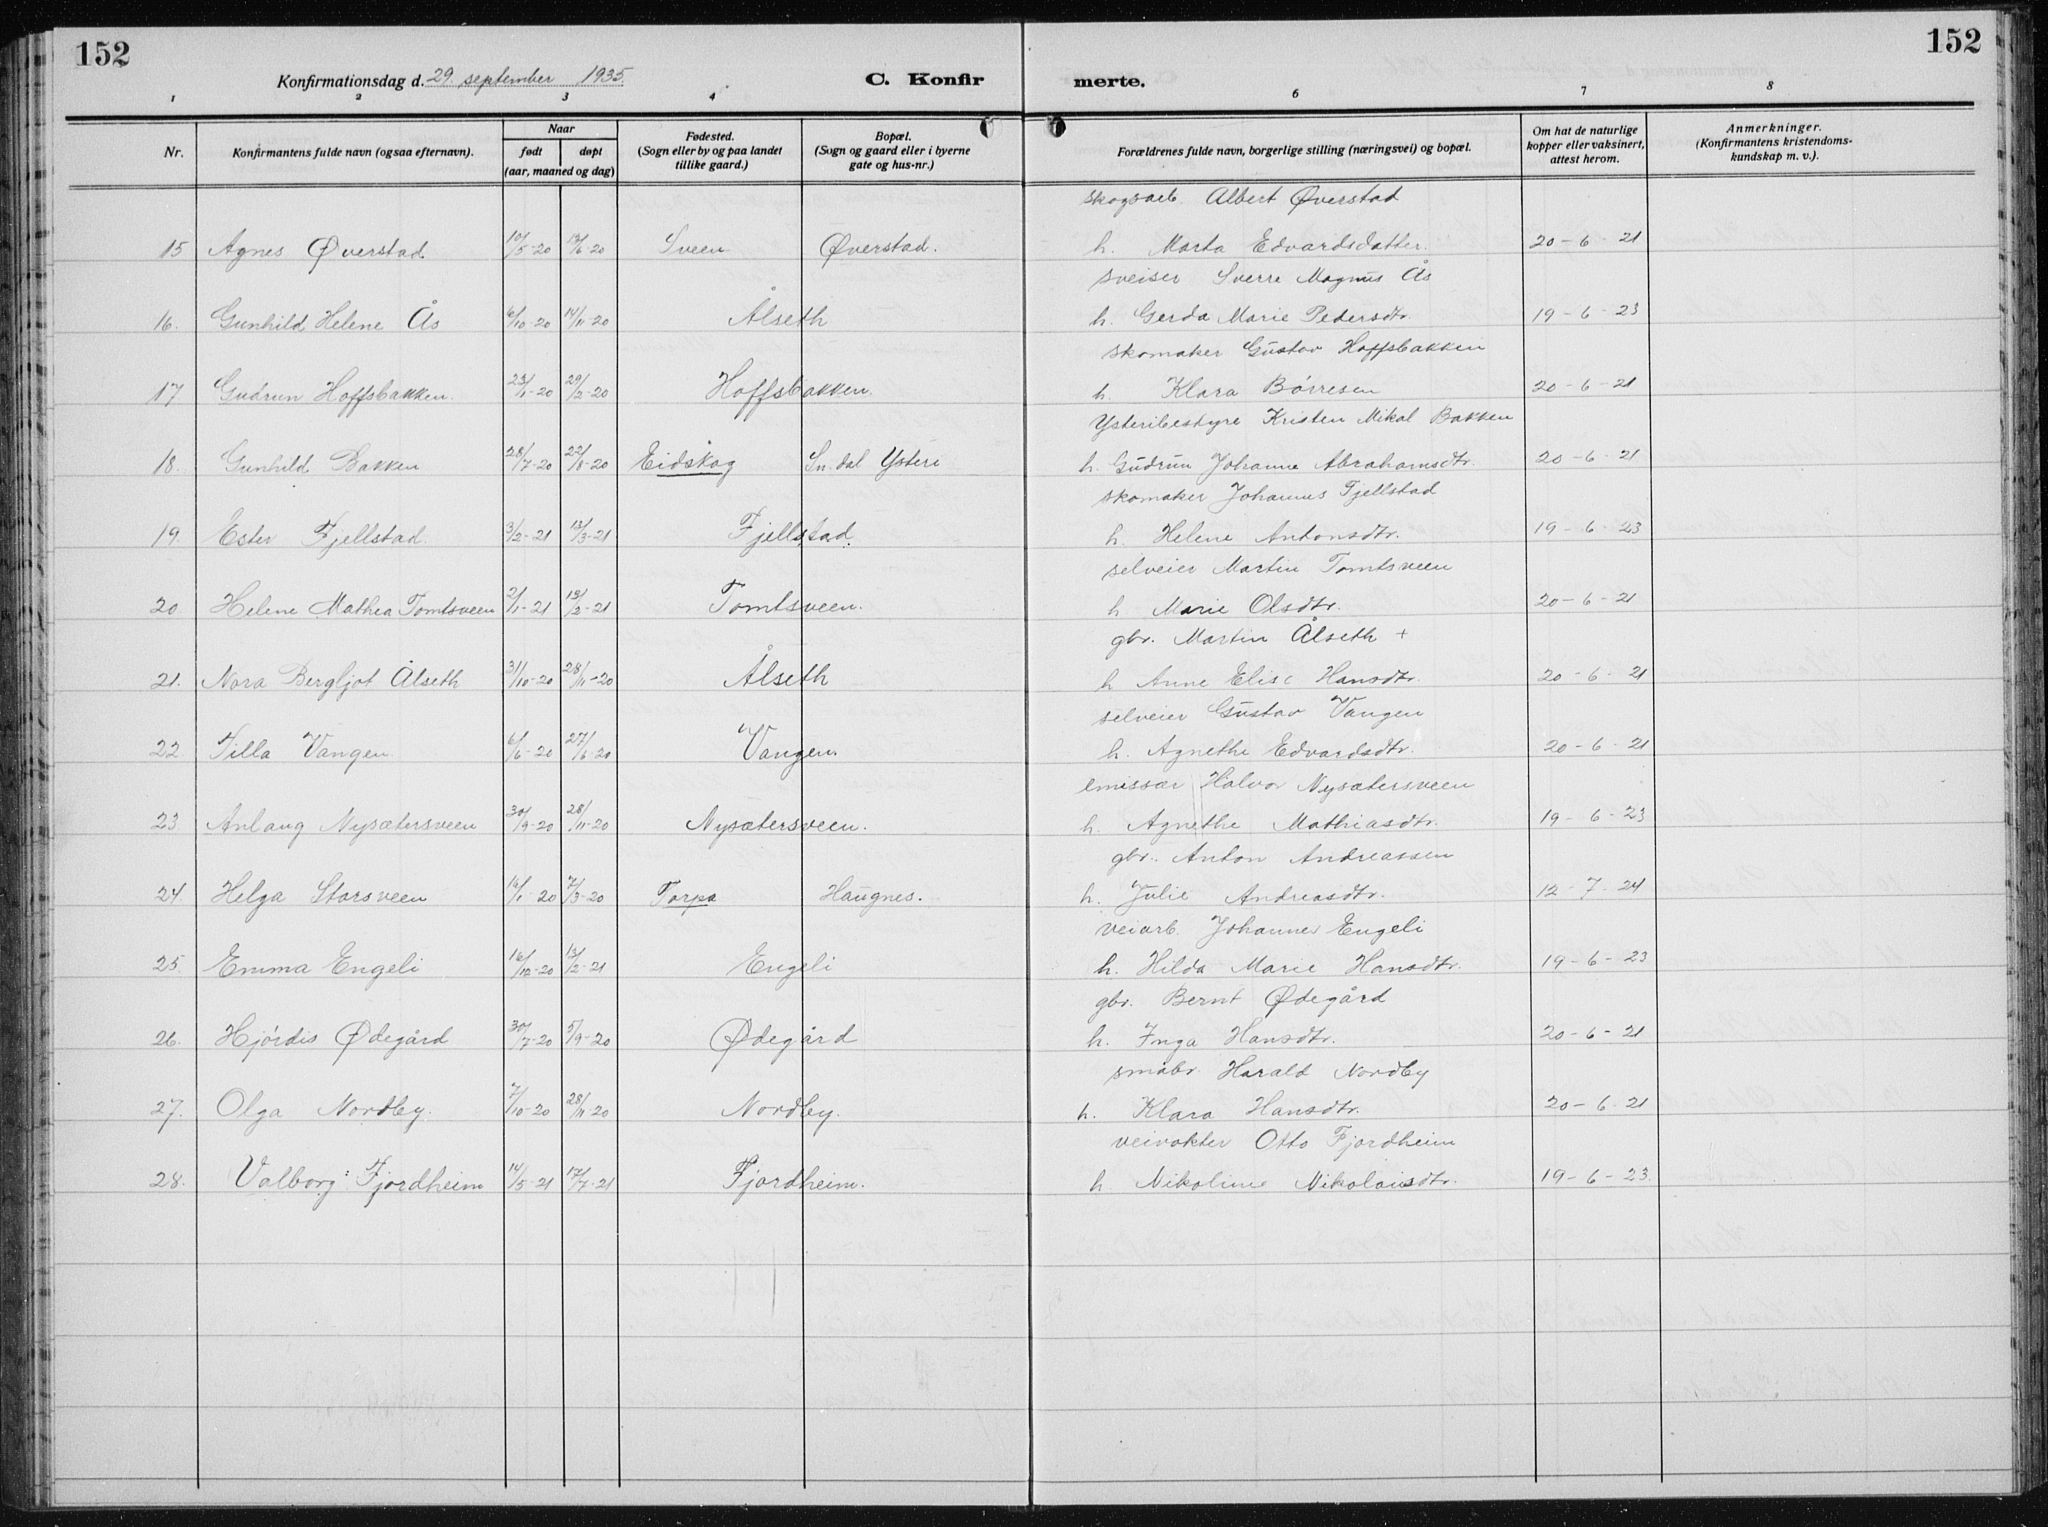 152
152
Konfirmationsdag d. 29. september 1935.
C. Konfir
merte.
1 2 3 4 6 7 8
Nr.
Konfirmantens fulde navn (ogsaa efternavn).
Naar
født døpt
(aar, maaned og dag)
Fødested.
(Sogn eller by og paa landet
tillike gaard.)
Bopæl.
(Sogn og gaard eller i byerne
gate og hus-nr.)
Forældrenes fulde navn, borgerlige stilling (næringsvei) og bopæl.
Om hat de naturlige
kopper eller vaksinert,
attest herom.
Anmerkninger.
(Konfirmantens kristendoms-
kundskap m. v.).
skogsarb. Albert Øverstad
15 Agnes Øverstad 10/5-20 13/6-20 Sveen Øverstad. h. Marta Edvardsdatter. 20-6-21
sveiser Sverre Magnus Ås
16. Gunhild Helene Ås 6/10-20 14/11-20 Ålseth h. Gerda Marie Pedersdtr. 19-6-23
skomaker Gustav Hoffsbakken
17 Gudrun Hoffsbakken. 23/1-20 29/2-20 Hoffsbakken. h. Klara Børresen 20-6-21
Ysteribestyre Kristen Mikal Bakken
18. Gunhild Bakken 28/7-20 22/8-20 Eidskog Sn.dal Ysteri h. Gudrun Johanne Abrahamsdtr. 20-6-21
skomaker Johannes Fjellstad
19. Ester Fjellstad. 3/2-21 13/3-21 Fjellstad. h. Helene Antonsdtr. 19-6-23
selveier Martin Tomtsveen
20 Helene Mathea Tomtsveen 2/1-21 13/2-21 Tomtsveen. h. Marie Olsdtr. 20-6-21
gbr. Martin Ålseth +
21. Nora Bergljot Ålseth 31/10-20 28/11-20 Ålseth h Anne Elise Hansdtr. 20-6-21
selveier Gustav Vangen
22 Tilla Vangen. 6/6-20 27/6-20 Vangen. h. Agnethe Edvardsdtr. 20-6-21
emissær Halvor Nysætersveen
23 Anlaug Nysætersveen 30/9-20 28/11-20 Nysætersveen. h. Agnethe Mathiasdtr. 19-6-23
gbr. Anton Andreassen
24. Helga Storsveen 16/1-20 7/3-20 Torpa Haugnes. h. Julie Andreasdtr. 12-7-24
veiarb. Johannes Engeli
25. Emma Engeli 16/12-20 13/2-21 Engeli h. Hilda Marie Hansdtr. 19-6-23
gbr. Bernt Ødegård
26. Hjørdis Ødegård 30/7-20 5/9-20 Ødegård h. Inga Hansdtr. 20-6-21
småbr. Harald Nordby
27. Olga Nordby. 7/10-20 28/11-20 Nordby. h. Klara Hansdtr. 20-6-21
veivokter Otto Fjordheim
28. Valborg Fjordheim 14/5-21 17/7-21 Fjordheim. h. Nikoline Nikolaisdtr. 19-6-23.